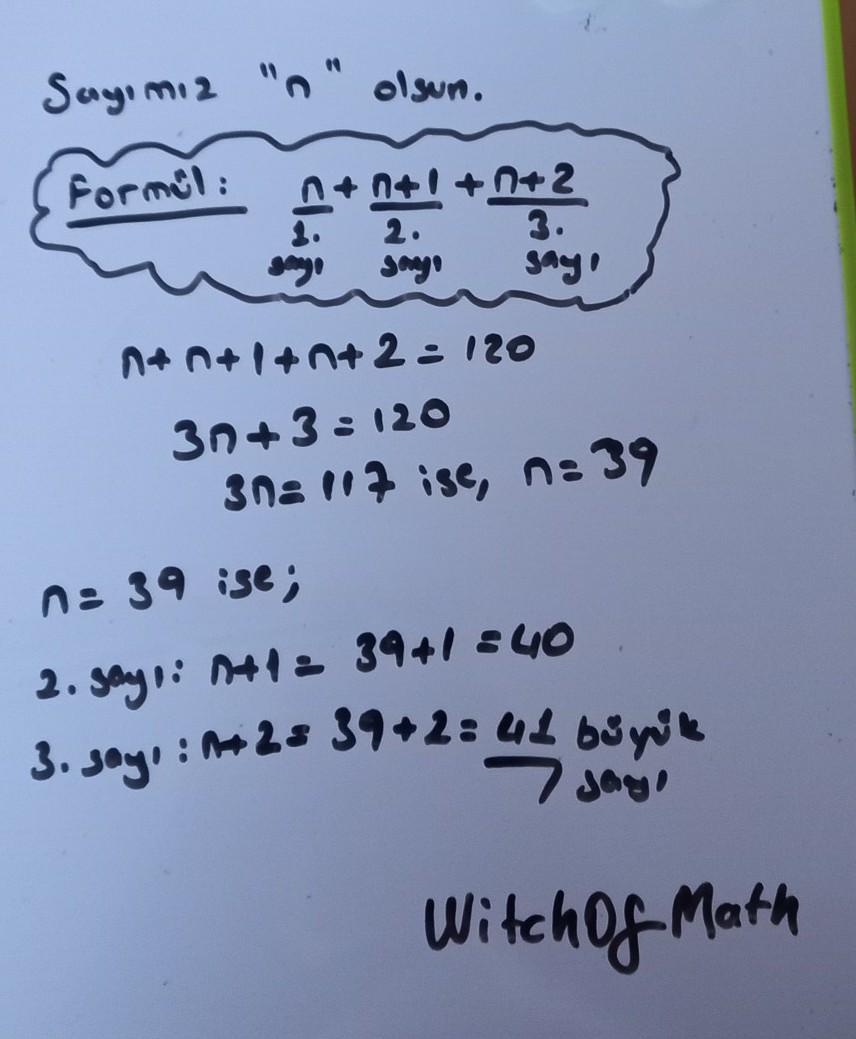 Sayımız "n" olsun.
Formül: n + n+1 + n+2
1. 2. 3.
sayı sayı sayı
n+n+1+n+2=120
3n+3=120
3n=117 ise, n=39
n=39 ise;
2. sayı: n+1= 39+1=40
3. sayı: n+2= 39+2= 41 büyük
sayı
WitchOfMath